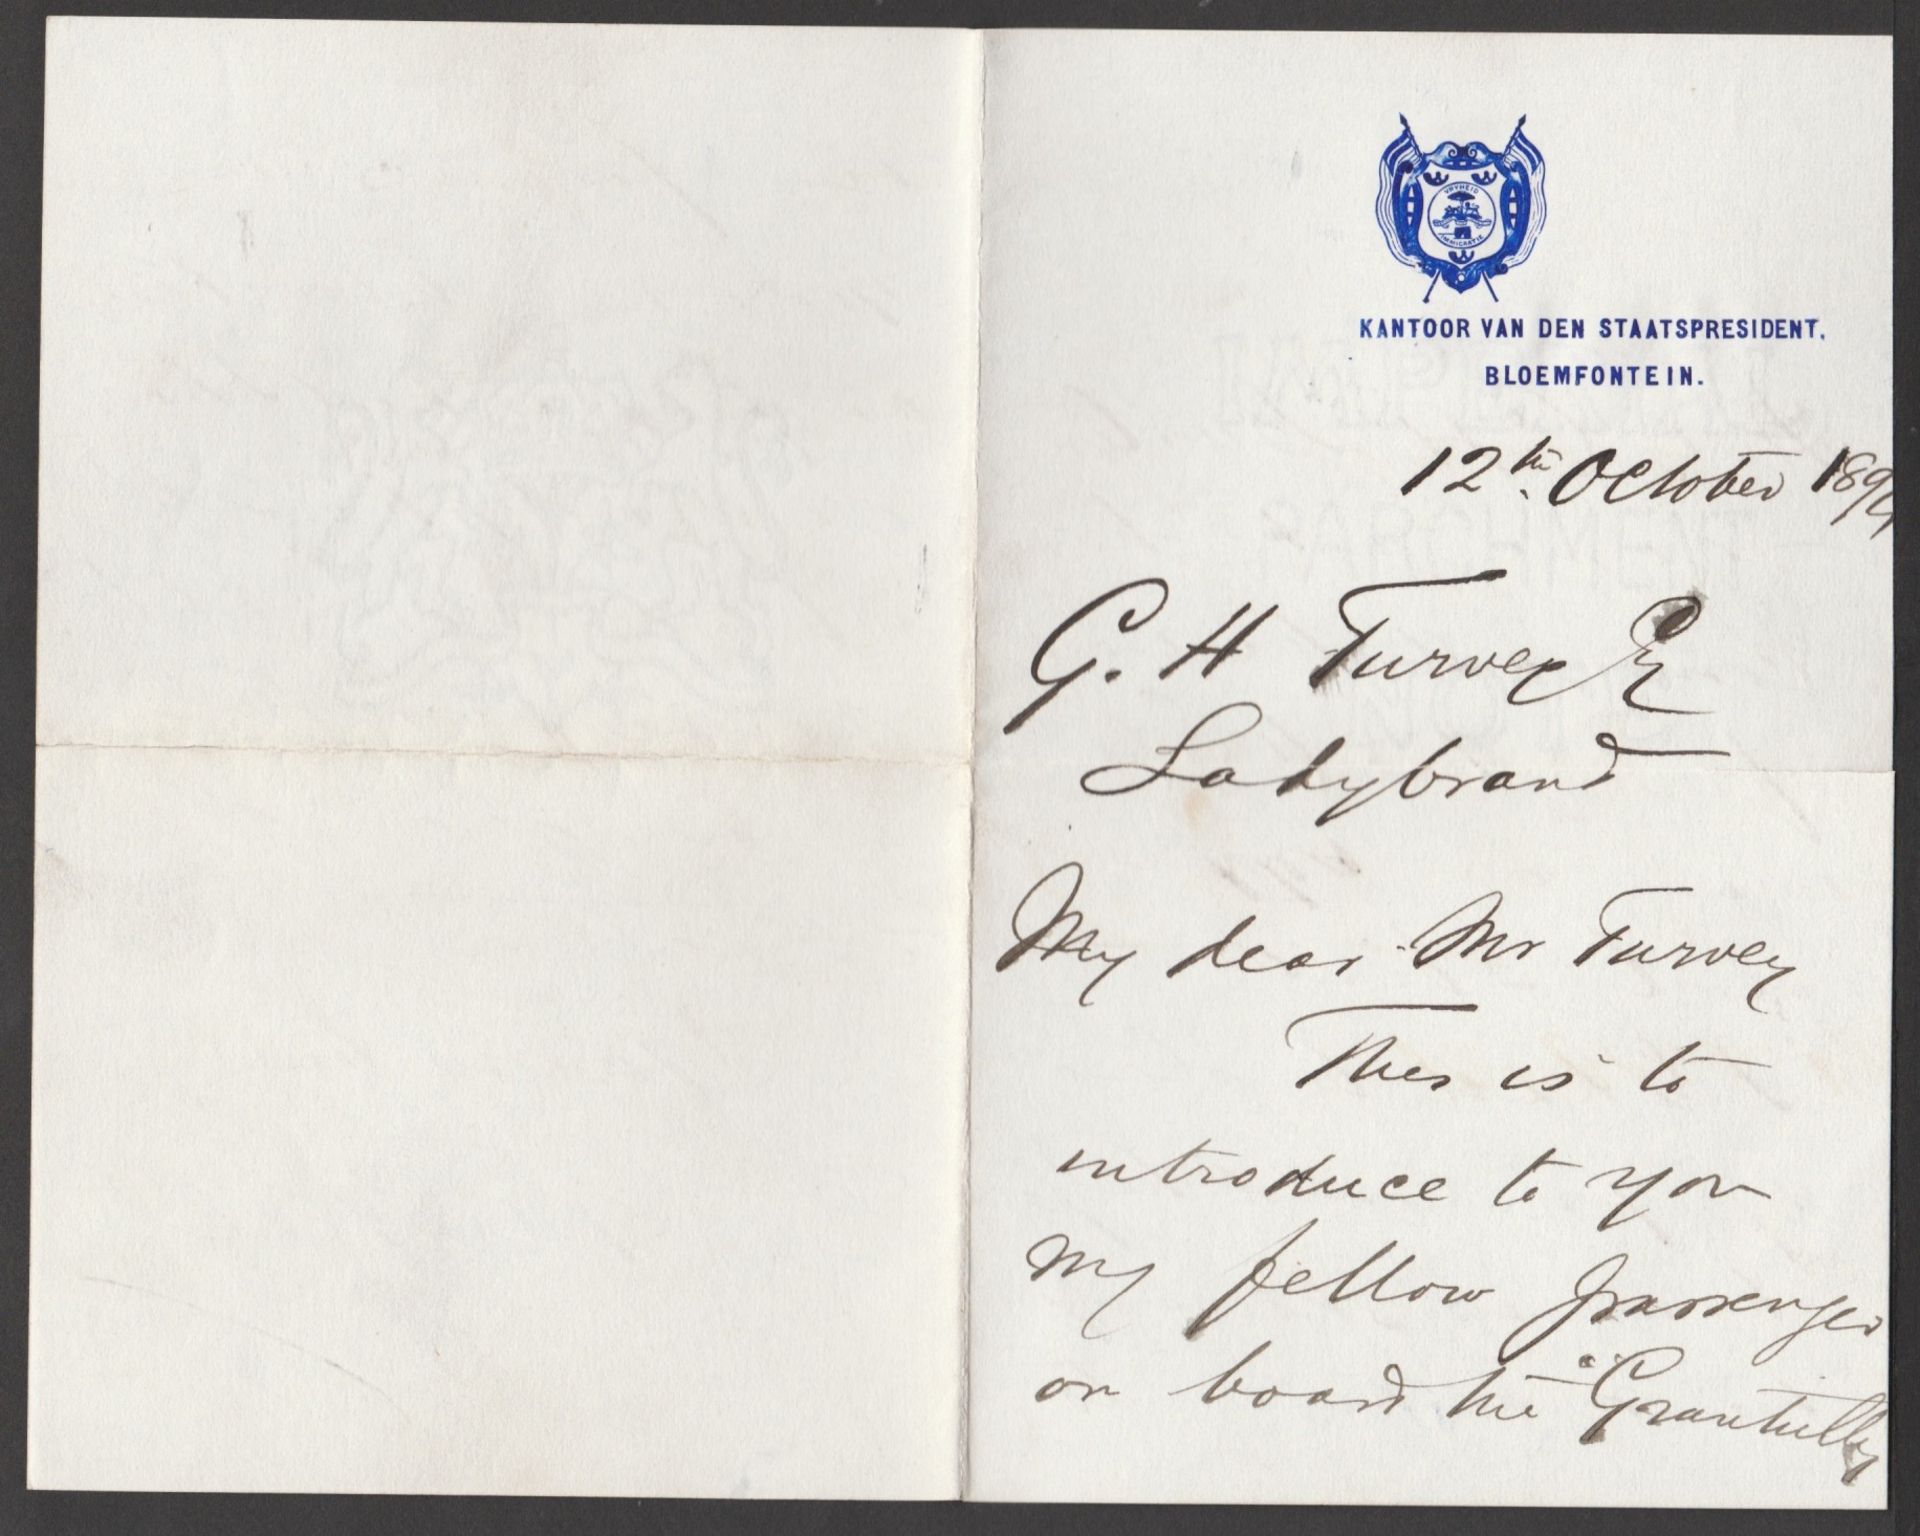 VRYHEID
IMMIGRATIE
KANTOOR VAN DEN STAATSPRESIDENT.
BLOEMFONTEIN.
12th October
G. H Turvey Esq
Ladybrand
My dear Mr Turvey
This is to
introduce to you
my fellow passenger
on board the "Grantully